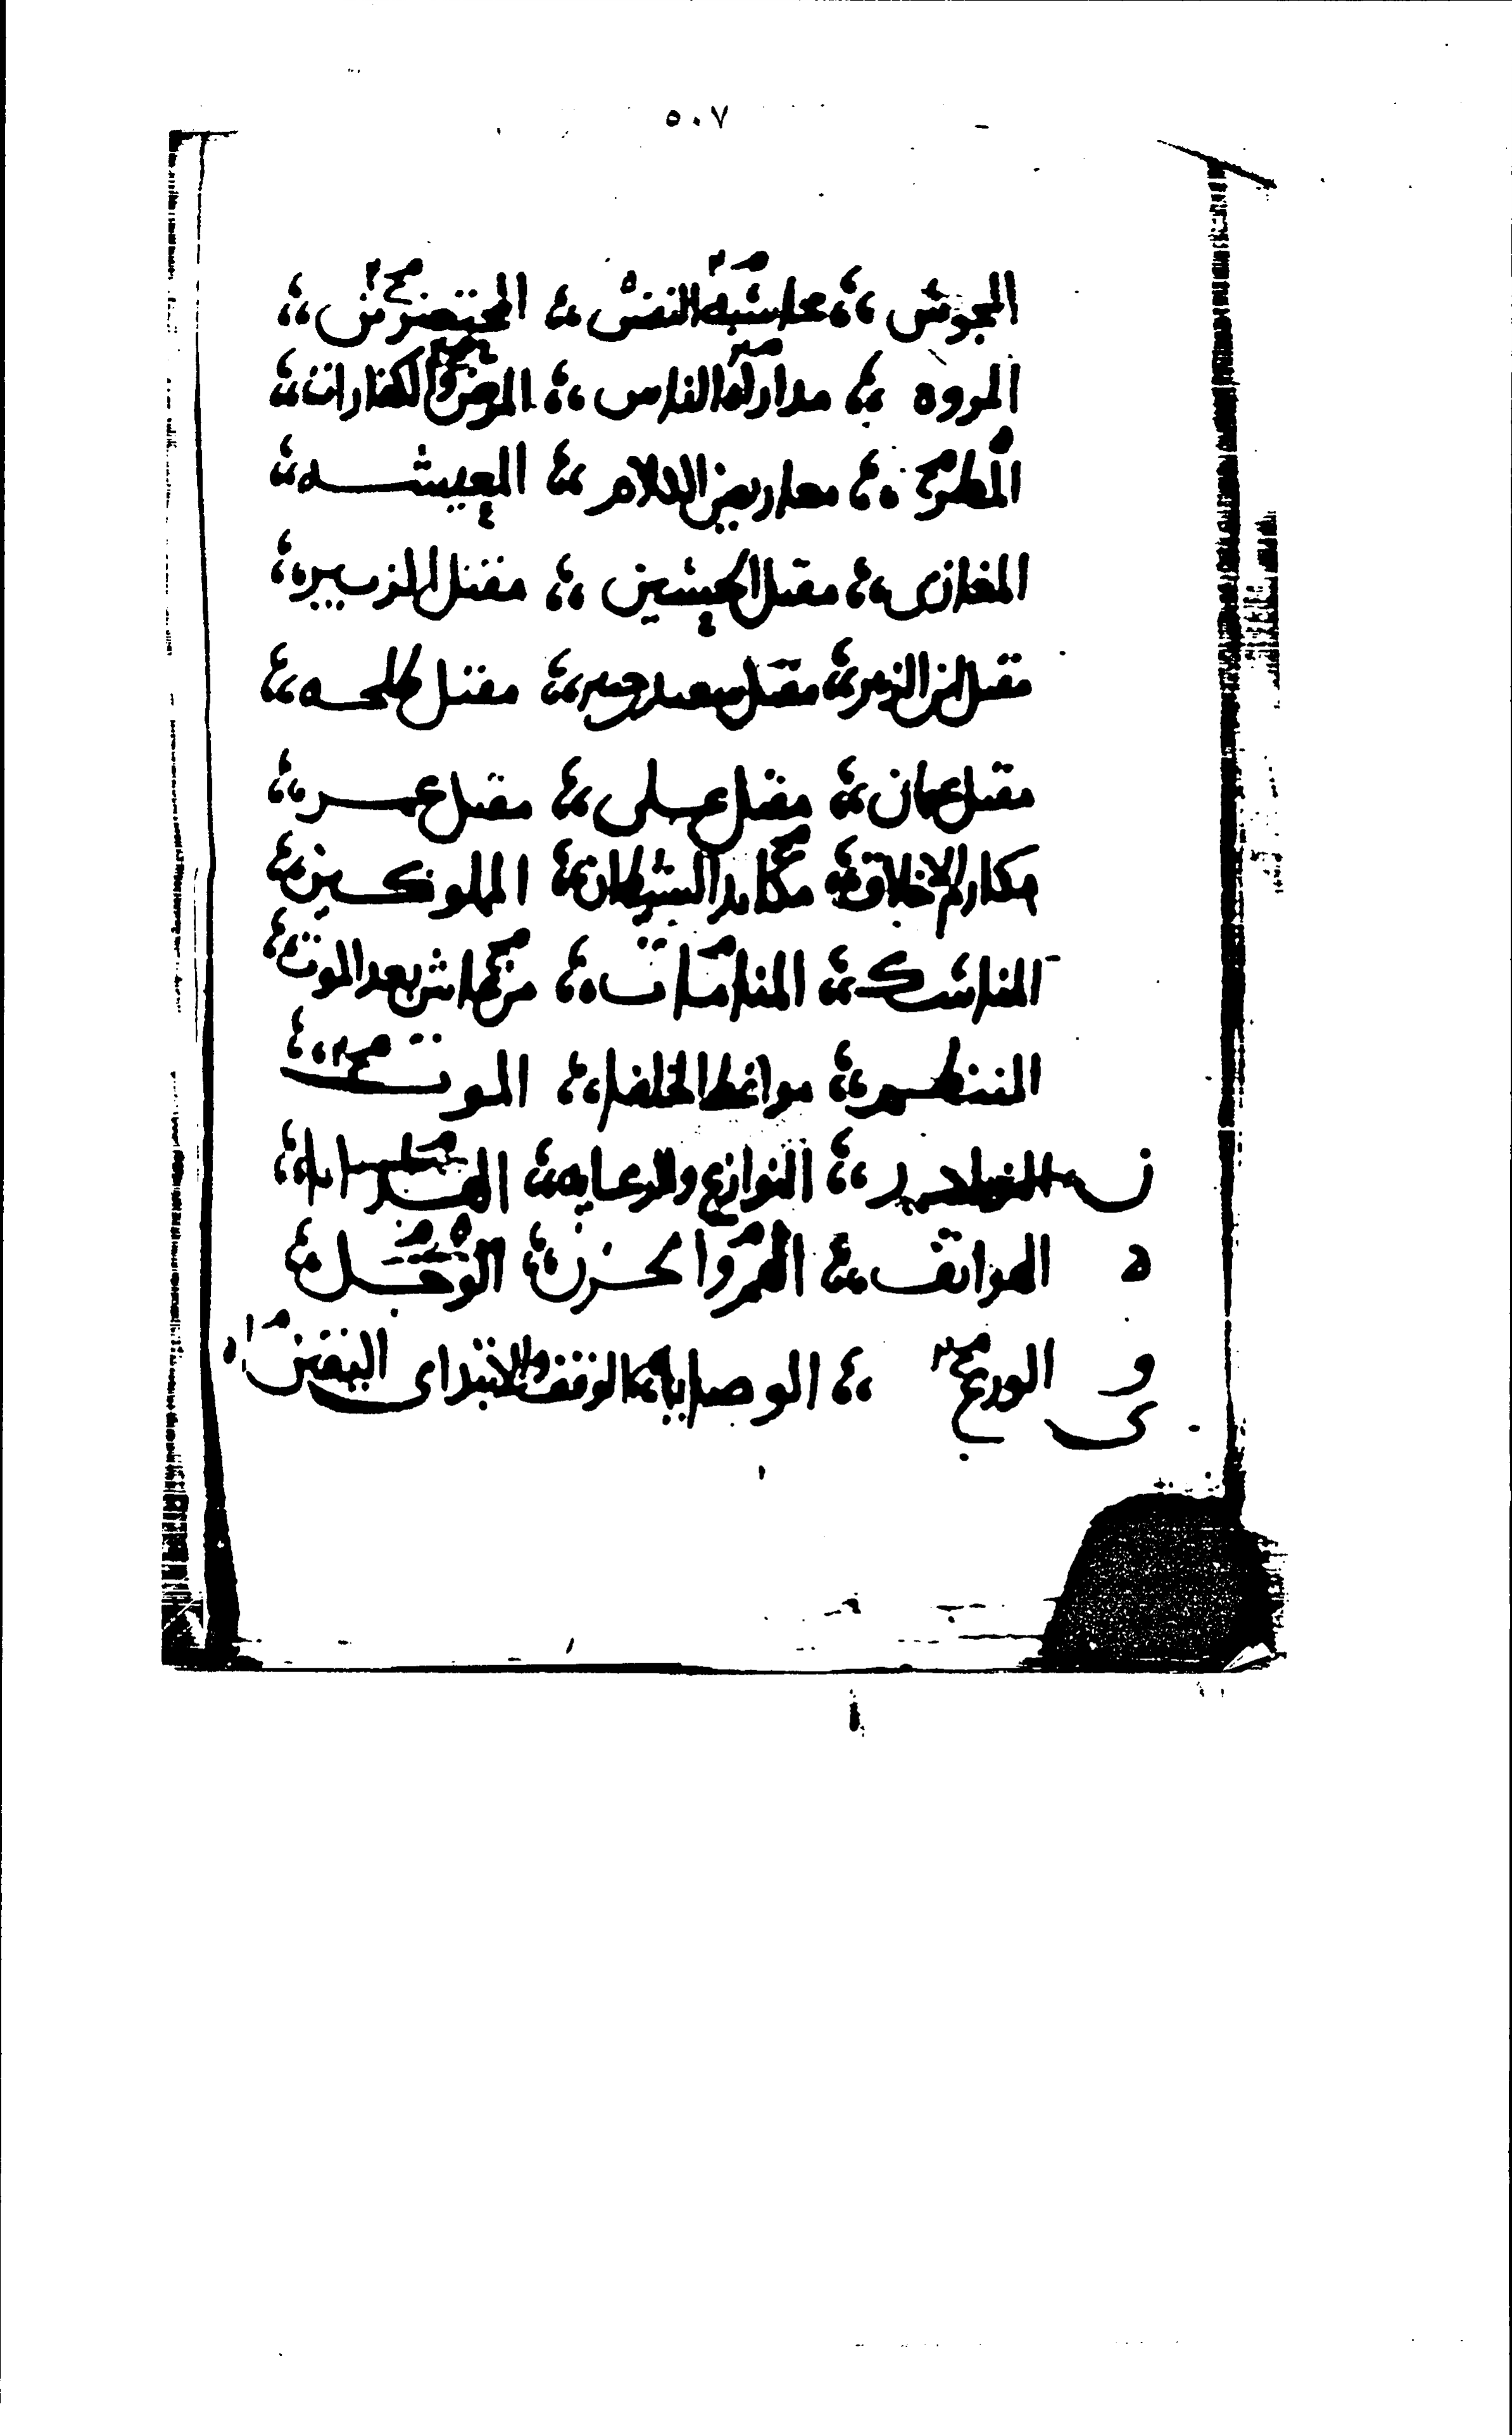 ٥٠٧
المجوس محاسبة النفس المحتضرين
المروه مداراة الناس المرض والكفارات
المطر معاريض الكلام المعيشه
المغازى مقتل الحسين مقتل الزبير
مقتل ابن الزبير مقتل سعيد بن جبير مقتل طلحه
مقتل عثمان مقتل على مقتل عمر
مكارم الاخلاق مكايد الشيطان المملوكين
المناسك المنامات من عاش بعد الموت
المنتظم مواعظ الخلفا الموت
ن النوازع والرعايه
ه الهواتف الهم والحزن الوجل
و الورع الوصايا الوقف والابتداى اليقين
ى